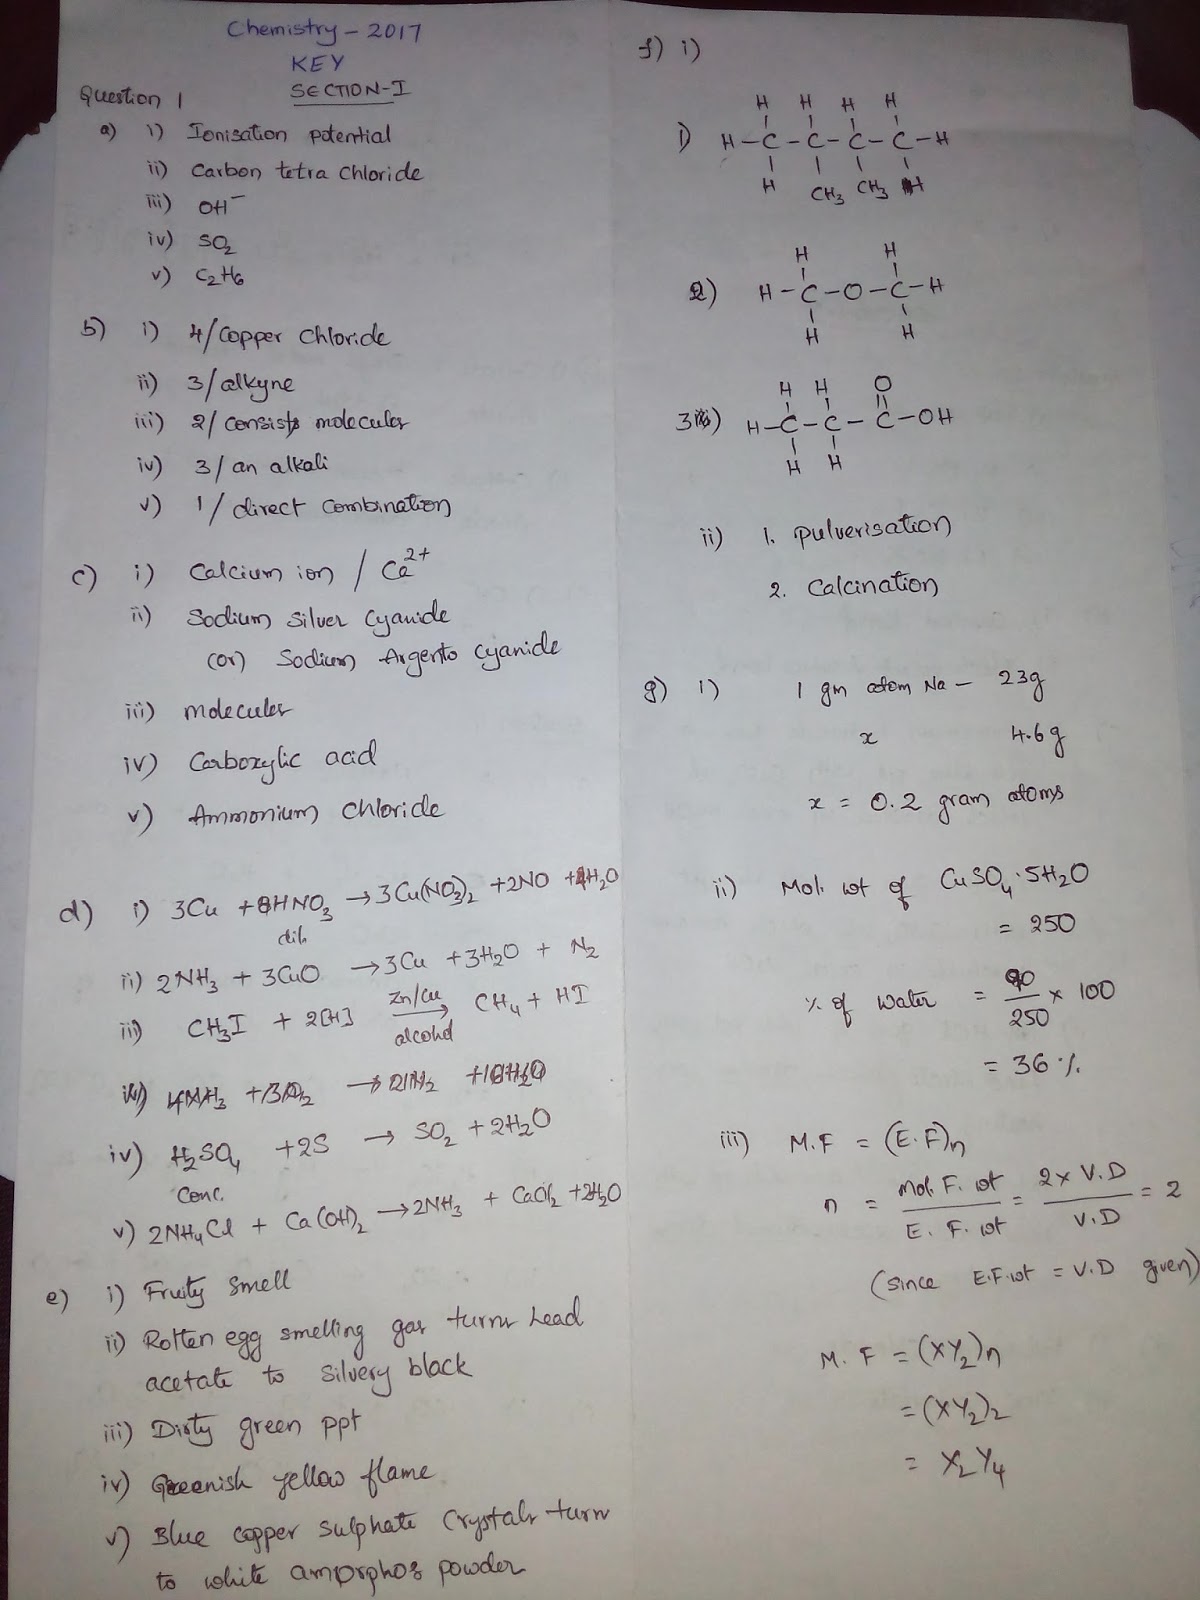 Chemistry - 2017
KEY
SECTION-I
Question 1
a) i) Ionisation potential
ii) Carbon tetra chloride
iii) OH⁻
iv) SO₂
v) C₂H₆
b) i) 4/Copper chloride
ii) 3/alkyne
iii) 2/consists molecules
iv) 3/an alkali
v) 1/direct combination
c) i) Calcium ion / Ca²⁺
ii) Sodium silver cyanide
(or) Sodium Argento cyanide
iii) molecules
iv) Carboxylic acid
v) Ammonium chloride
d) i) 3Cu + 8HNO₃ → 3Cu(NO₃)₂ + 2NO + 4H₂O
dil.
ii) 2NH₃ + 3CuO → 3Cu + 3H₂O + N₂
iii) CH₃I + 2[H] Zn/Cu → alcohol CH₄ + HI
iv) H₂SO₄ + 2S → SO₂ + 2H₂O
Conc.
v) 2NH₄Cl + Ca(OH)₂ → 2NH₃ + CaCl₂ + 2H₂O
e) i) Fruity smell
ii) Rotten egg smelling gas turns Lead
acetate to silvery black
iii) Dirty green ppt
iv) Greenish yellow flame
v) Blue copper sulphate Crystals turn
to white amorphos powder
f) i)
H H H H
1) H-C-C-C-C-H
H CH₃ CH₃ H
H H
2) H-C-O-C-H
H H
H H O
3) H-C-C-C-OH
H H
ii) 1. Pulverisation
2. Calcination
g) i) 1 gm atom Na - 23g
x 4.6g
x = 0.2 gram atoms
ii) Mol. wt of CuSO₄·5H₂O
= 250
% of water = 90/250 × 100
= 36%
iii) M.F = (E.F)n
n = Mol. F. wt / E. F. wt = 2 × V.D / V.D = 2
(since E.F.wt = V.D given)
M.F = (XY₂)n
= (XY₂)₂
= X₂Y₄